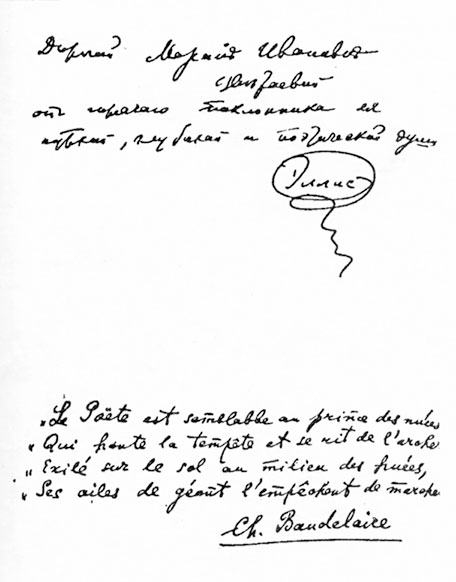 Дорогой Марiи Ивановне
отъ горячаго поклонника ея
чуткой, глубокой и поэтической души
Эллис
„Le Poëte est semblable au prince des nuées
„Qui hante la tempete et se rit de l'archer
„Exilé sur le sol au milieu des huées,
„Ses ailes de géant l'empêchent de marcher
Ch. Baudelaire